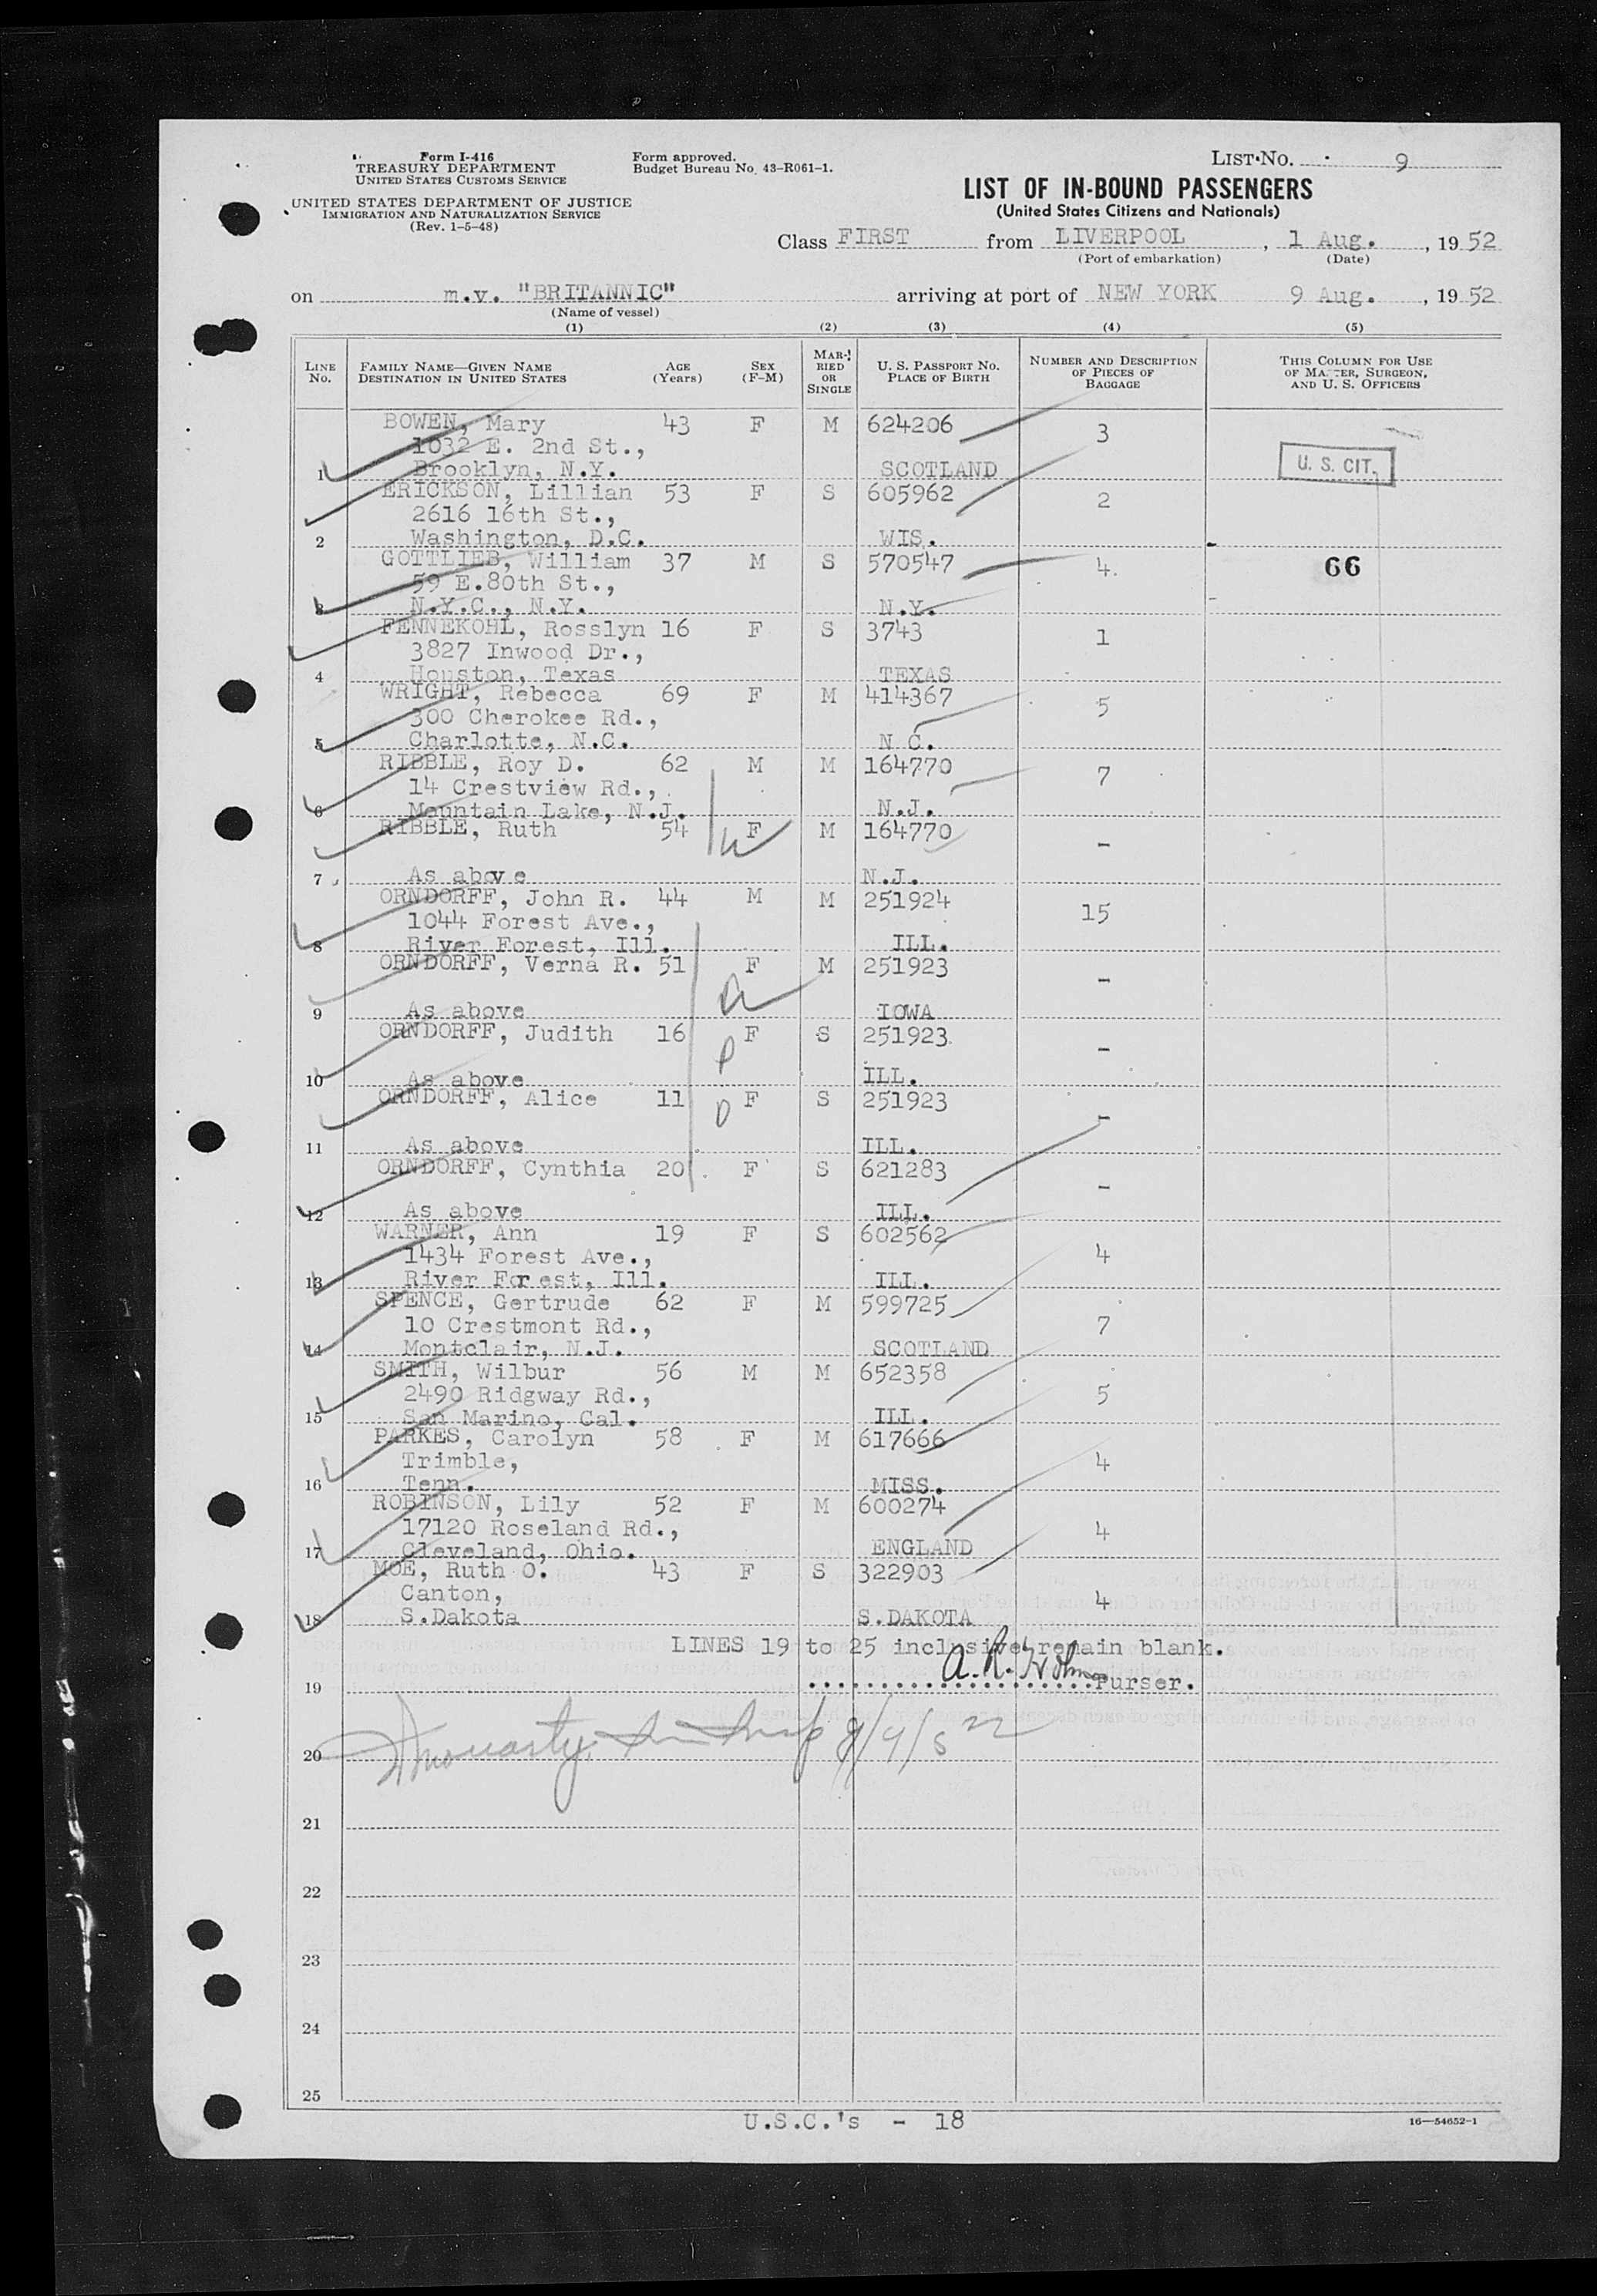 Form I-416
TREASURY DEPARTMENT
UNITED STATES CUSTOMS SERVICE
UNITED STATES DEPARTMENT OF JUSTICE
IMMIGRATION AND NATURALIZATION SERVICE
(Rev. 1-5-48)
Form approved.
Budget Bureau No. 43-R061-1.
LIST No. 9
LIST OF IN-BOUND PASSENGERS
(United States Citizens and Nationals)
Class FIRST from LIVERPOOL, 1 Aug., 1952
(Port of embarkation) (Date)
on m.v. "BRITANNIC" arriving at port of NEW YORK 9 Aug., 1952
(Name of vessel)
(1) (2) (3) (4) (5)
LINE No. FAMILY NAME—GIVEN NAME DESTINATION IN UNITED STATES AGE (Years) SEX (F-M) MARRIED OR SINGLE U. S. PASSPORT No. PLACE OF BIRTH NUMBER AND DESCRIPTION OF PIECES OF BAGGAGE THIS COLUMN FOR USE OF MASTER, SURGEON, AND U. S. OFFICERS
BOWEN, Mary 43 F M 624206 3
1032 E. 2nd St.,
1 Brooklyn, N.Y. SCOTLAND U. S. CIT.
ERICKSON, Lillian 53 F S 605962 2
2616 16th St.,
2 Washington, D.C. WIS.
GOTTLIEB, William 37 M S 570547 4. 66
59 E.80th St.,
3 N.Y.C., N.Y. N.Y.
FENNEKOHL, Rosslyn 16 F S 3743 1
3827 Inwood Dr.,
4 Houston, Texas TEXAS
WRIGHT, Rebecca 69 F M 414367 5
300 Cherokee Rd.,
5 Charlotte, N.C. N C.
RIBBLE, Roy D. 62 M M 164770 7
14 Crestview Rd.,
6 Mountain Lake, N.J. N.J.
RIBBLE, Ruth 54 W F M 164770 -
7 As above N.J.
ORNDORFF, John R. 44 M M 251924 15
1044 Forest Ave.,
8 River Forest, Ill. ILL.
ORNDORFF, Verna R. 51 F M 251923 -
9 As above IOWA
ORNDORFF, Judith 16 F S 251923 -
10 As above ILL.
ORNDORFF, Alice 11 F S 251923 -
11 As above ILL.
ORNDORFF, Cynthia 20 F S 621283 -
12 As above ILL.
WARNER, Ann 19 F S 602562 4
1434 Forest Ave.,
13 River Forest, Ill. ILL.
SPENCE, Gertrude 62 F M 599725 7
10 Crestmont Rd.,
14 Montclair, N.J. SCOTLAND
SMITH, Wilbur 56 M M 652358 5
2490 Ridgway Rd.,
15 San Marino, Cal. ILL.
PARKES, Carolyn 58 F M 617666 4
Trimble,
16 Tenn. MISS.
ROBINSON, Lily 52 F M 600274 4
17120 Roseland Rd.,
17 Cleveland, Ohio. ENGLAND
MOE, Ruth O. 43 F S 322903 4
Canton,
18 S.Dakota S.DAKOTA
LINES 19 to 25 inclusive remain blank.
19 Purser.
20
21
22
23
24
25
U.S.C.'s - 18
16—54652-1